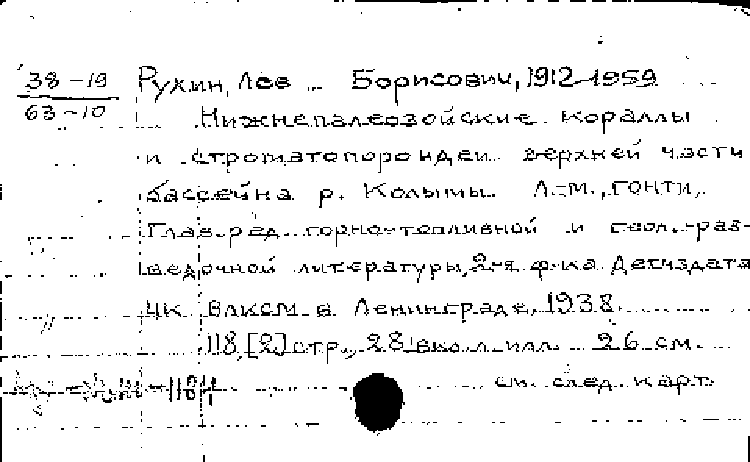 38-19 Рухин, Лев Борисович, 1912-1959
63-10
Нижнепалеозойские кораллы
и строматопороидеи верхней части
бассейна р. Колымы. Л.-М., ГОНТИ,
Глав. ред. горно-топливной и геол.-раз-
ведочной литературы, 2-я ф-ка Детиздата
ЦК ВЛКСМ в Ленинграде, 1938.
118, [2] стр., 28 вкл. л. илл. 26 см.
см. след. карт.